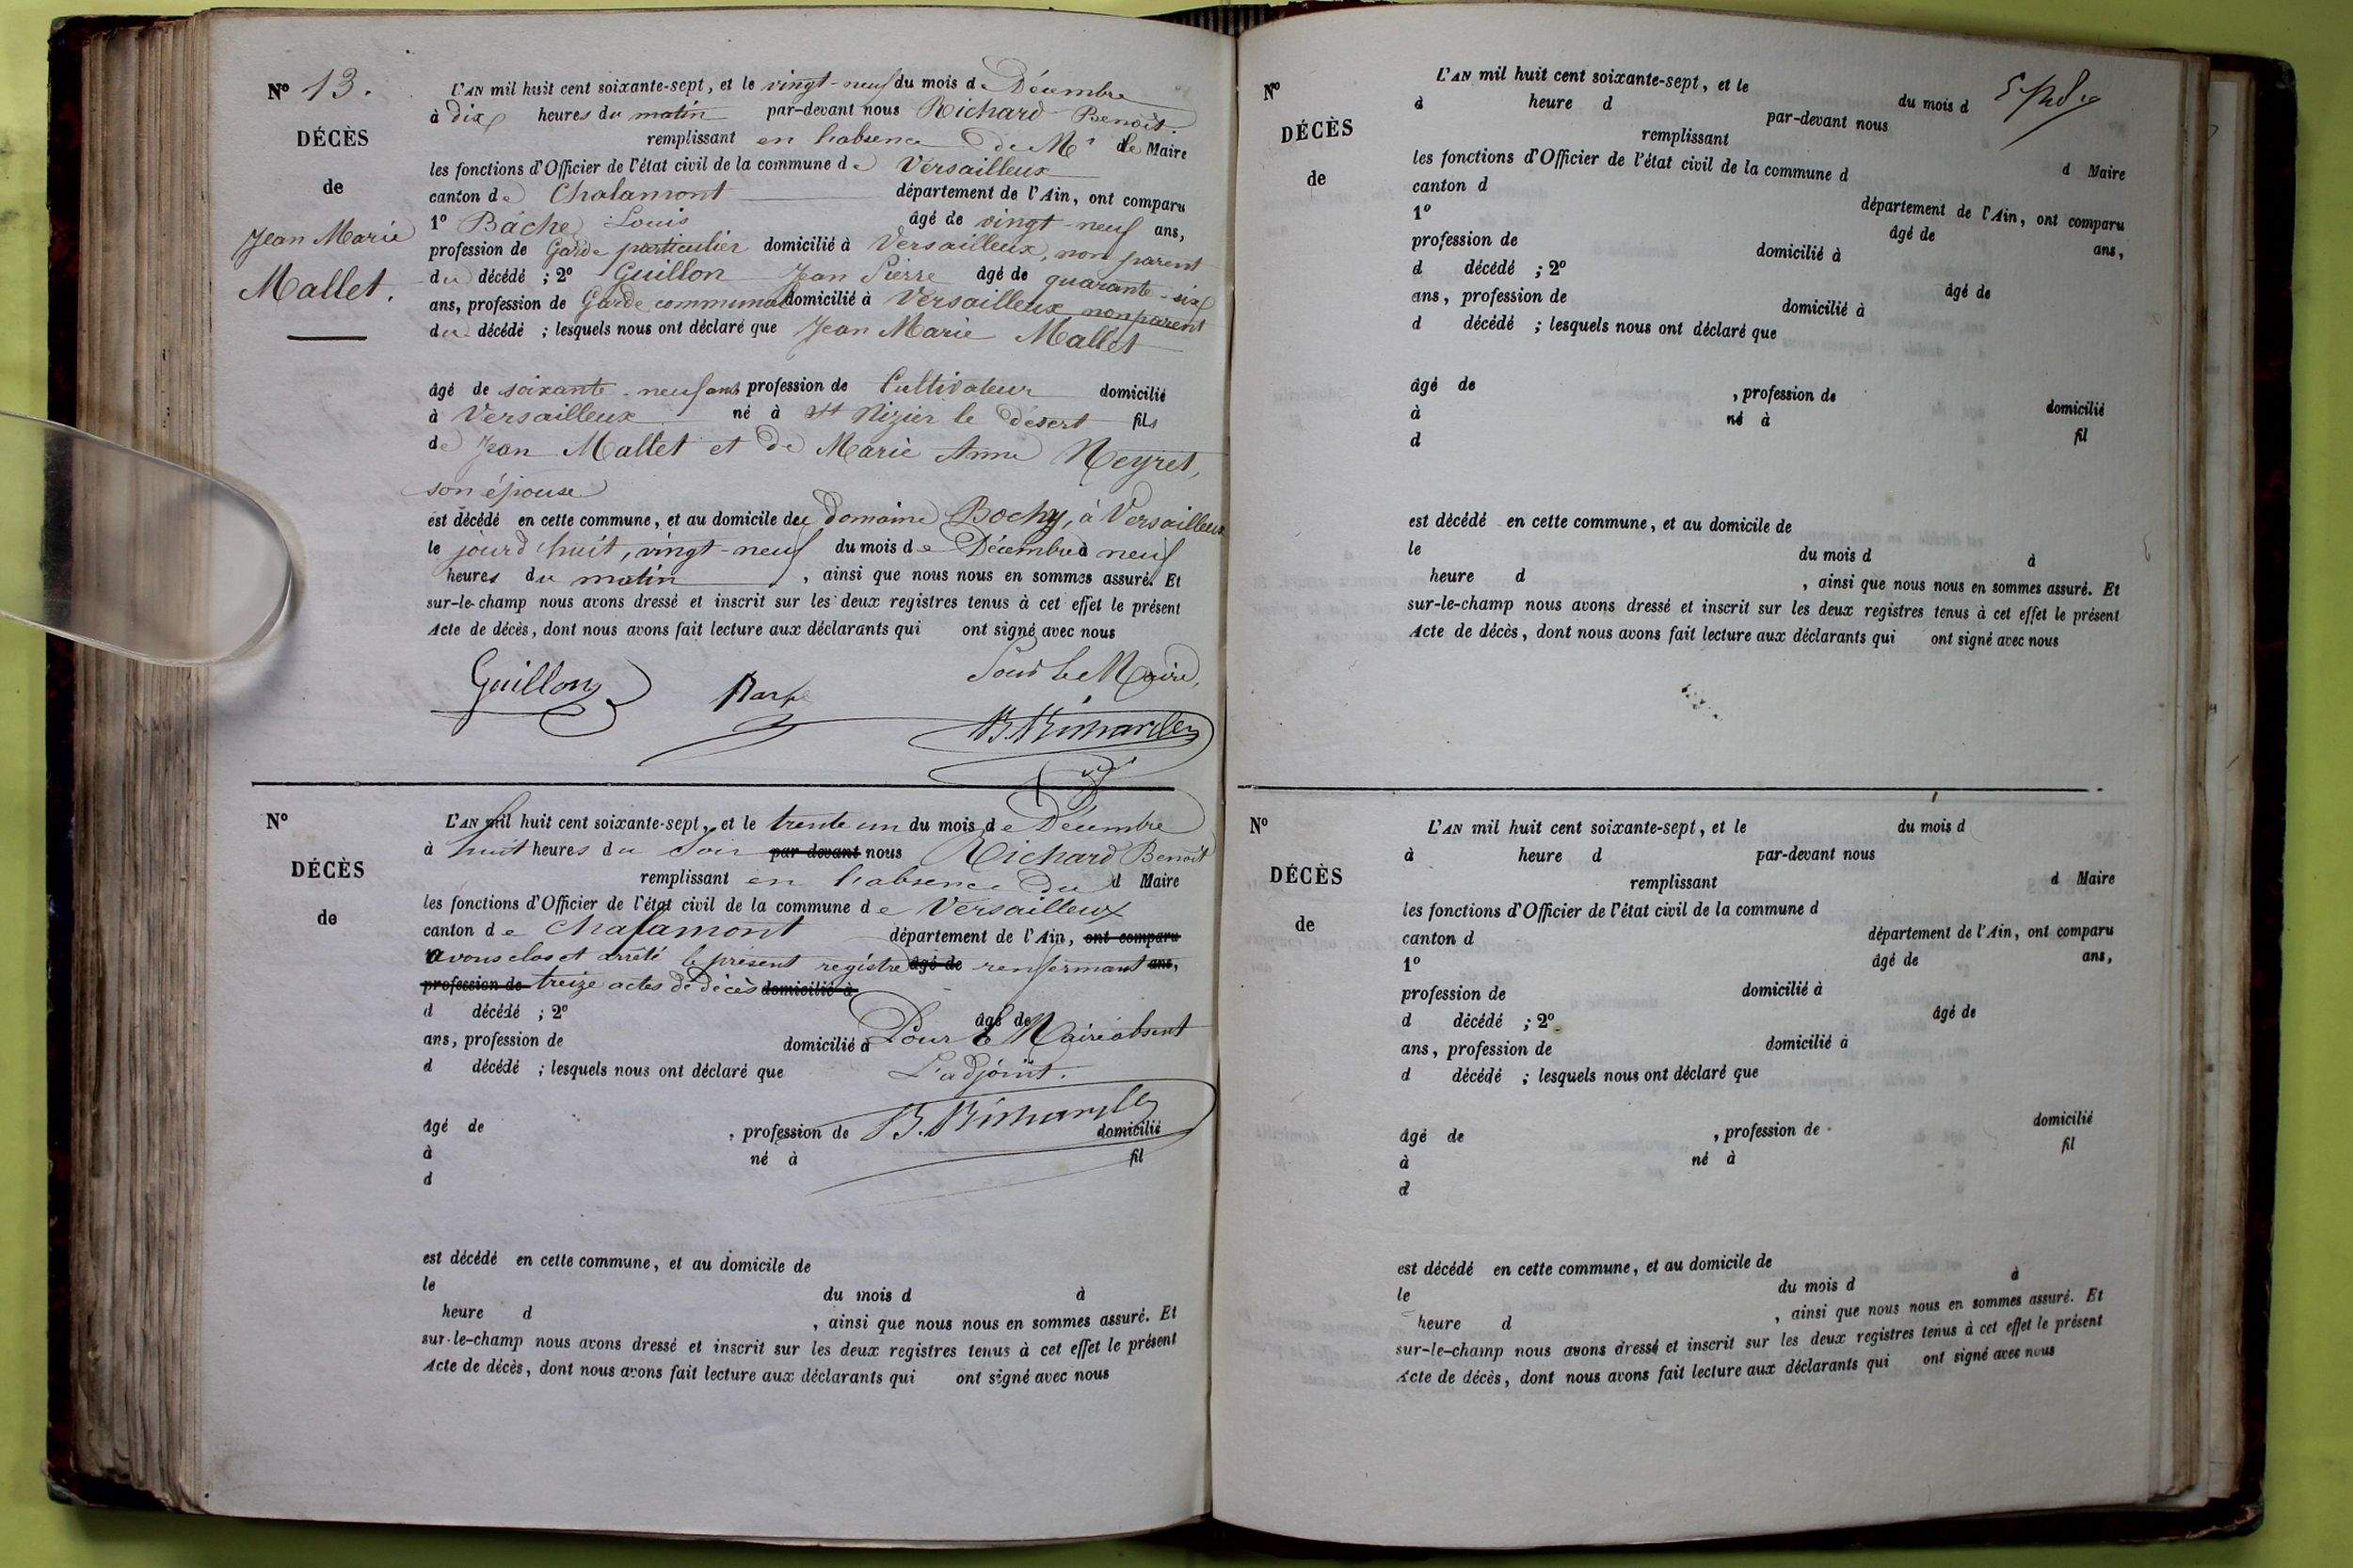 N° 13.
DÉCÈS
de
Jean Marie
Mallet.
L'AN mil huit cent soixante-sept, et le vingt-neuf du mois de Décembre
à dix heures du matin par-devant nous Richard Benoit.
remplissant en l'absence de Mr le Maire
les fonctions d'Officier de l'état civil de la commune de Versailleux
canton de Chalamont département de l'Ain, ont comparu
1° Bache Louis âgé de vingt-neuf ans,
profession de Garde particulier domicilié à Versailleux, non parent
du décédé ; 2° Guillon Jean Pierre âgé de quarante-six
ans, profession de Garde communal domicilié à Versailleux non parent
du décédé ; lesquels nous ont déclaré que Jean Marie Mallet
âgé de soixante-neuf ans profession de Cultivateur domicilié
à Versailleux né à St Nizier le désert fils
de Jean Mallet et de Marie Anne Neyret,
son épouse
est décédé en cette commune, et au domicile du Domaine Bochy, à Versailleux
le jourd'huit, vingt-neuf du mois de Décembre à neuf
heures du matin, ainsi que nous nous en sommes assuré. Et
sur-le-champ nous avons dressé et inscrit sur les deux registres tenus à cet effet le présent
Acte de décès, dont nous avons fait lecture aux déclarants qui ont signé avec nous
Pour le Maire,
Guillon
N°
DÉCÈS
de
L'AN mil huit cent soixante-sept, et le trente un du mois de Décembre
à huit heures du Soir par-devant nous Richard Benoit
remplissant en l'absence du d Maire
les fonctions d'Officier de l'état civil de la commune de Versailleux
canton de Chalamont département de l'Ain, ont comparu
avons clos et arrêté le présent registre âgé de renfermant ans,
profession de treize actes de décès domicilié à
d décédé ; 2° âgé de
Pour le Maire absent
ans, profession de domicilié à
d décédé ; lesquels nous ont déclaré que L'adjoint.
âgé de , profession de domicilié
à né à fil
d
est décédé en cette commune, et au domicile de
le du mois d à
heure d , ainsi que nous nous en sommes assuré. Et
sur-le-champ nous avons dressé et inscrit sur les deux registres tenus à cet effet le présent
Acte de décès, dont nous avons fait lecture aux déclarants qui ont signé avec nous
N°
DÉCÈS
de
L'AN mil huit cent soixante-sept, et le du mois d
à heure d par-devant nous
remplissant d Maire
les fonctions d'Officier de l'état civil de la commune d
canton d département de l'Ain, ont comparu
1° âgé de ans,
profession de domicilié à
d décédé ; 2° âgé de
ans, profession de domicilié à
d décédé ; lesquels nous ont déclaré que
âgé de , profession de domicilié
à né à fil
d
est décédé en cette commune, et au domicile de
le du mois d à
heure d , ainsi que nous nous en sommes assuré. Et
sur-le-champ nous avons dressé et inscrit sur les deux registres tenus à cet effet le présent
Acte de décès, dont nous avons fait lecture aux déclarants qui ont signé avec nous
N°
DÉCÈS
de
L'AN mil huit cent soixante-sept, et le du mois d
à heure d par-devant nous
remplissant d Maire
les fonctions d'Officier de l'état civil de la commune d
canton d département de l'Ain, ont comparu
1° âgé de ans,
profession de domicilié à
d décédé ; 2° âgé de
ans, profession de domicilié à
d décédé ; lesquels nous ont déclaré que
âgé de , profession de domicilié
à né à fil
d
est décédé en cette commune, et au domicile de
le du mois d à
heure d , ainsi que nous nous en sommes assuré. Et
sur-le-champ nous avons dressé et inscrit sur les deux registres tenus à cet effet le présent
Acte de décès, dont nous avons fait lecture aux déclarants qui ont signé avec nous